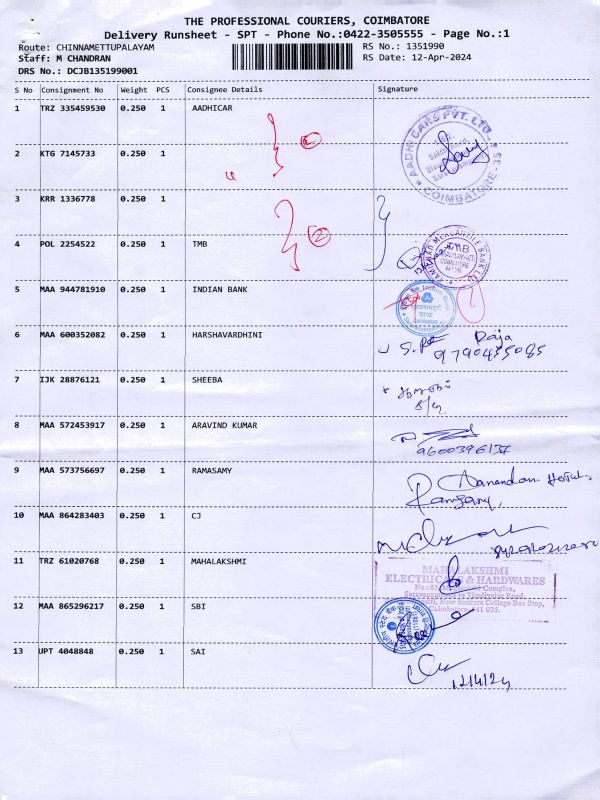 THE PROFESSIONAL COURIERS, COIMBATORE
Delivery Runsheet - SPT - Phone No.:0422-3505555 - Page No.:1
Route: CHINNAMETTUPALAYAM
RS No.: 1351990
Staff: M CHANDRAN
RS Date: 12-Apr-2024
DRS No.: DCJB135199001
S No Consignment No Weight PCS Consignee Details Signature
1 TRZ 335459530 0.250 1 AADHICAR
AADHI CARS PVT. LTD.
COIMBATORE-35
2 KTG 7145733 0.250 1
3 KRR 1336778 0.250 1
2
4 POL 2254522 0.250 1 TMB
TAMILNAD MERCANTILE BANK LTD
TMB
5 MAA 944781910 0.250 1 INDIAN BANK
Indian Bank
6 MAA 600352082 0.250 1 HARSHAVARDHINI
Raja
9790435085
7 IJK 28876121 0.250 1 SHEEBA
8 MAA 572453917 0.250 1 ARAVIND KUMAR
9600396137
9 MAA 573756697 0.250 1 RAMASAMY
10 MAA 864283403 0.250 1 CJ
11 TRZ 61020768 0.250 1 MAHALAKSHMI
MAHALAKSHMI
ELECTRICALS & HARDWARES
Complex,
Saravanampatti to Thudiyalur Road,
Near Sankara College Bus Stop,
Coimbatore - 641 035.
12 MAA 865296217 0.250 1 SBI
13 UPT 4048848 0.250 1 SAI
12/4/24